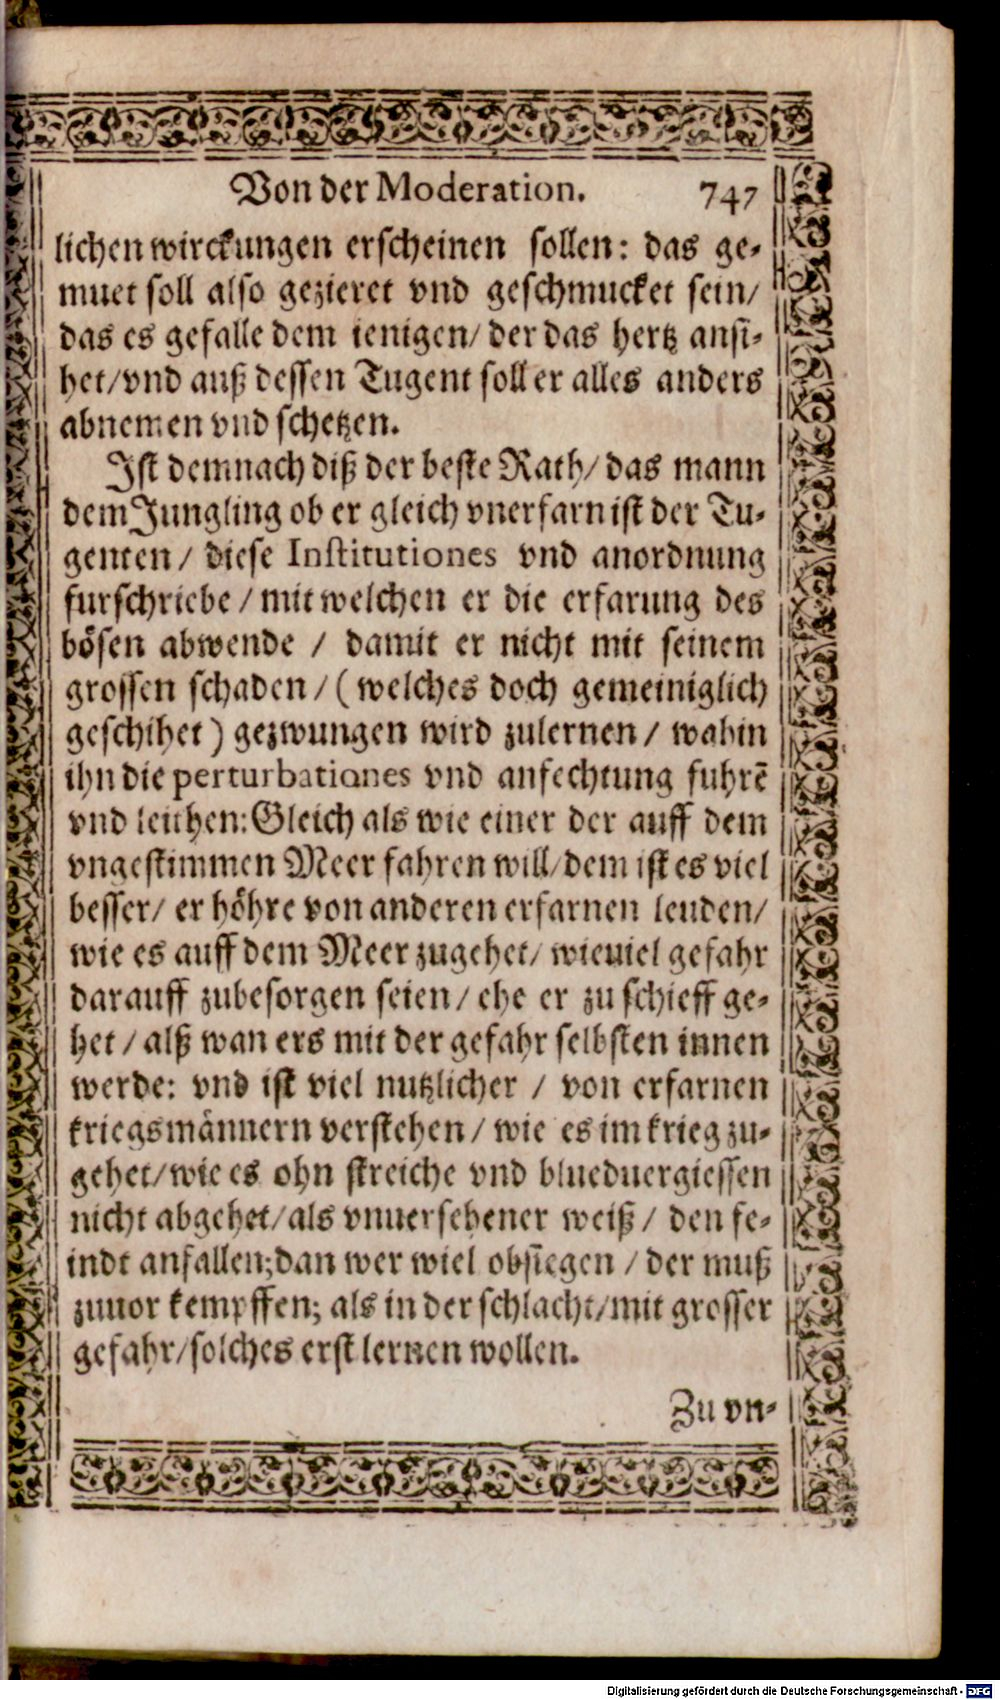 Von der Moderation. 747
lichen wirckungen erscheinen sollen: das ge-
muet soll also gezieret vnd geschmucket sein/
das es gefalle dem ienigen/ der das hertz ansi-
het/vnd auß dessen Tugent soll er alles anders
abnemen vnd schetzen.
Ist demnach diß der beste Rath/ das mann
dem Jungling ob er gleich vnerfarn ist der Tu-
genten/ diese Institutiones vnd anordnung
furschriebe / mit welchen er die erfarung des
bösen abwende / damit er nicht mit seinem
grossen schaden / ( welches doch gemeiniglich
geschihet ) gezwungen wird zulernen / wahin
ihn die perturbationes vnd anfechtung fuhrē
vnd leithen: Gleich als wie einer der auff dem
vngestimmen Meer fahren will/dem ist es viel
besser/ er höhre von anderen erfarnen leuden/
wie es auff dem Meer zugehet/ wieuiel gefahr
darauff zubesorgen seien/ ehe er zu schieff ge-
het / alß wan ers mit der gefahr selbsten innen
werde: vnd ist viel nutzlicher / von erfarnen
kriegsmännern verstehen/ wie es im krieg zu-
gehet/wie es ohn streiche vnd blueduergiessen
nicht abgehet/als vnuersehener weiß/ den fe-
indt anfallen;dan wer wiel obsiegen / der muß
zuuor kempffen; als in der schlacht/mit grosser
gefahr/solches erst lernen wollen.
Zu vn-
Digitalisierung gefördert durch die Deutsche Forschungsgemeinschaft - DFG